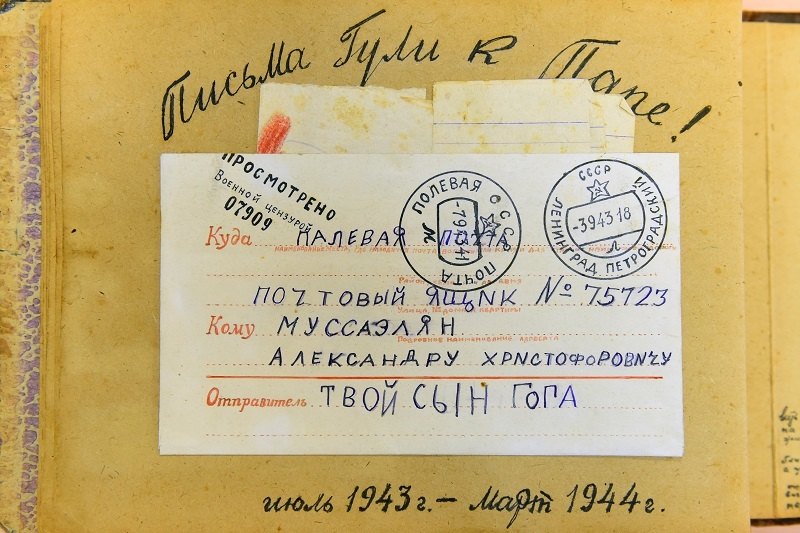 Письма Гули к Папе!
ПРОСМОТРЕНО
Военной цензурой
07909
ПОЛЕВАЯ ПОЧТА
СССР
СССР
-3.9.43.18
Л
ЛЕНИНГРАД ПЕТРОГРАДСКИЙ
Куда ПАЛЕВАЯ ПОЧТА
ПОЧТОВЫЙ ЯЩИК № 75723
УЛИЦА, № ДОМА И КВАРТИРЫ
Кому МУССАЭЛЯН
ПОДРОБНОЕ НАИМЕНОВАНИЕ АДРЕСАТА
АЛЕКСАНДРУ ХРИСТОФОРОВИЧУ
Отправитель ТВОЙ СЫН ГОГА
июль 1943 г. – март 1944 г.